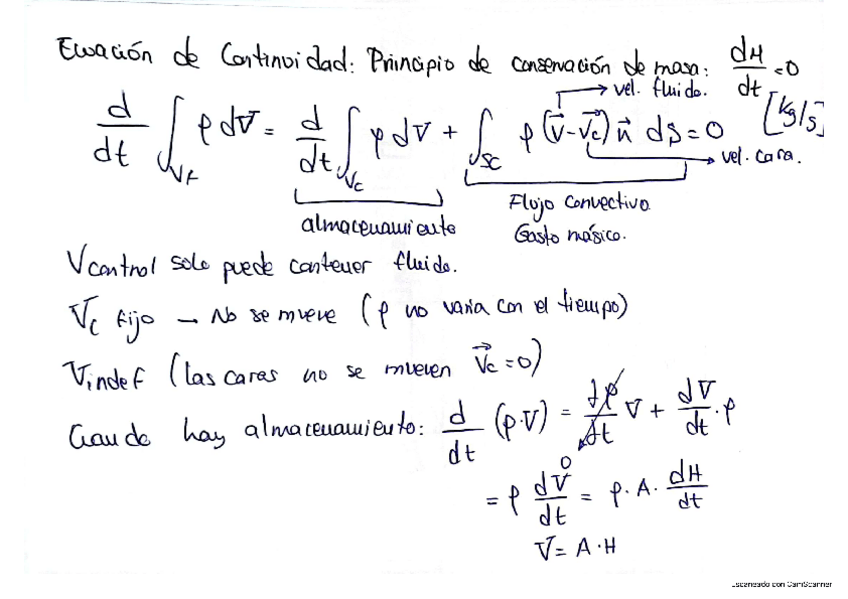 Ecuación de Continuidad: Principio de conservación de masa: dM/dt = 0
vel. fluido. [kg/s]
d/dt ∫_Vf ρ dV = d/dt ∫_Vc ρ dV + ∫_SC ρ (v⃗ - v⃗c) n⃗ dS = 0
vel. cara.
almacenamiento
Flujo convectivo.
Gasto másico.
Vcontrol solo puede contener fluido.
Vc fijo → No se mueve (ρ no varía con el tiempo)
Vindef (las caras no se mueven v⃗c = 0)
Cuando hay almacenamiento: d/dt (ρ·V) = dρ/dt V + dV/dt · ρ
0
= ρ dV/dt = ρ · A · dH/dt
V = A · H
Escaneado con CamScanner